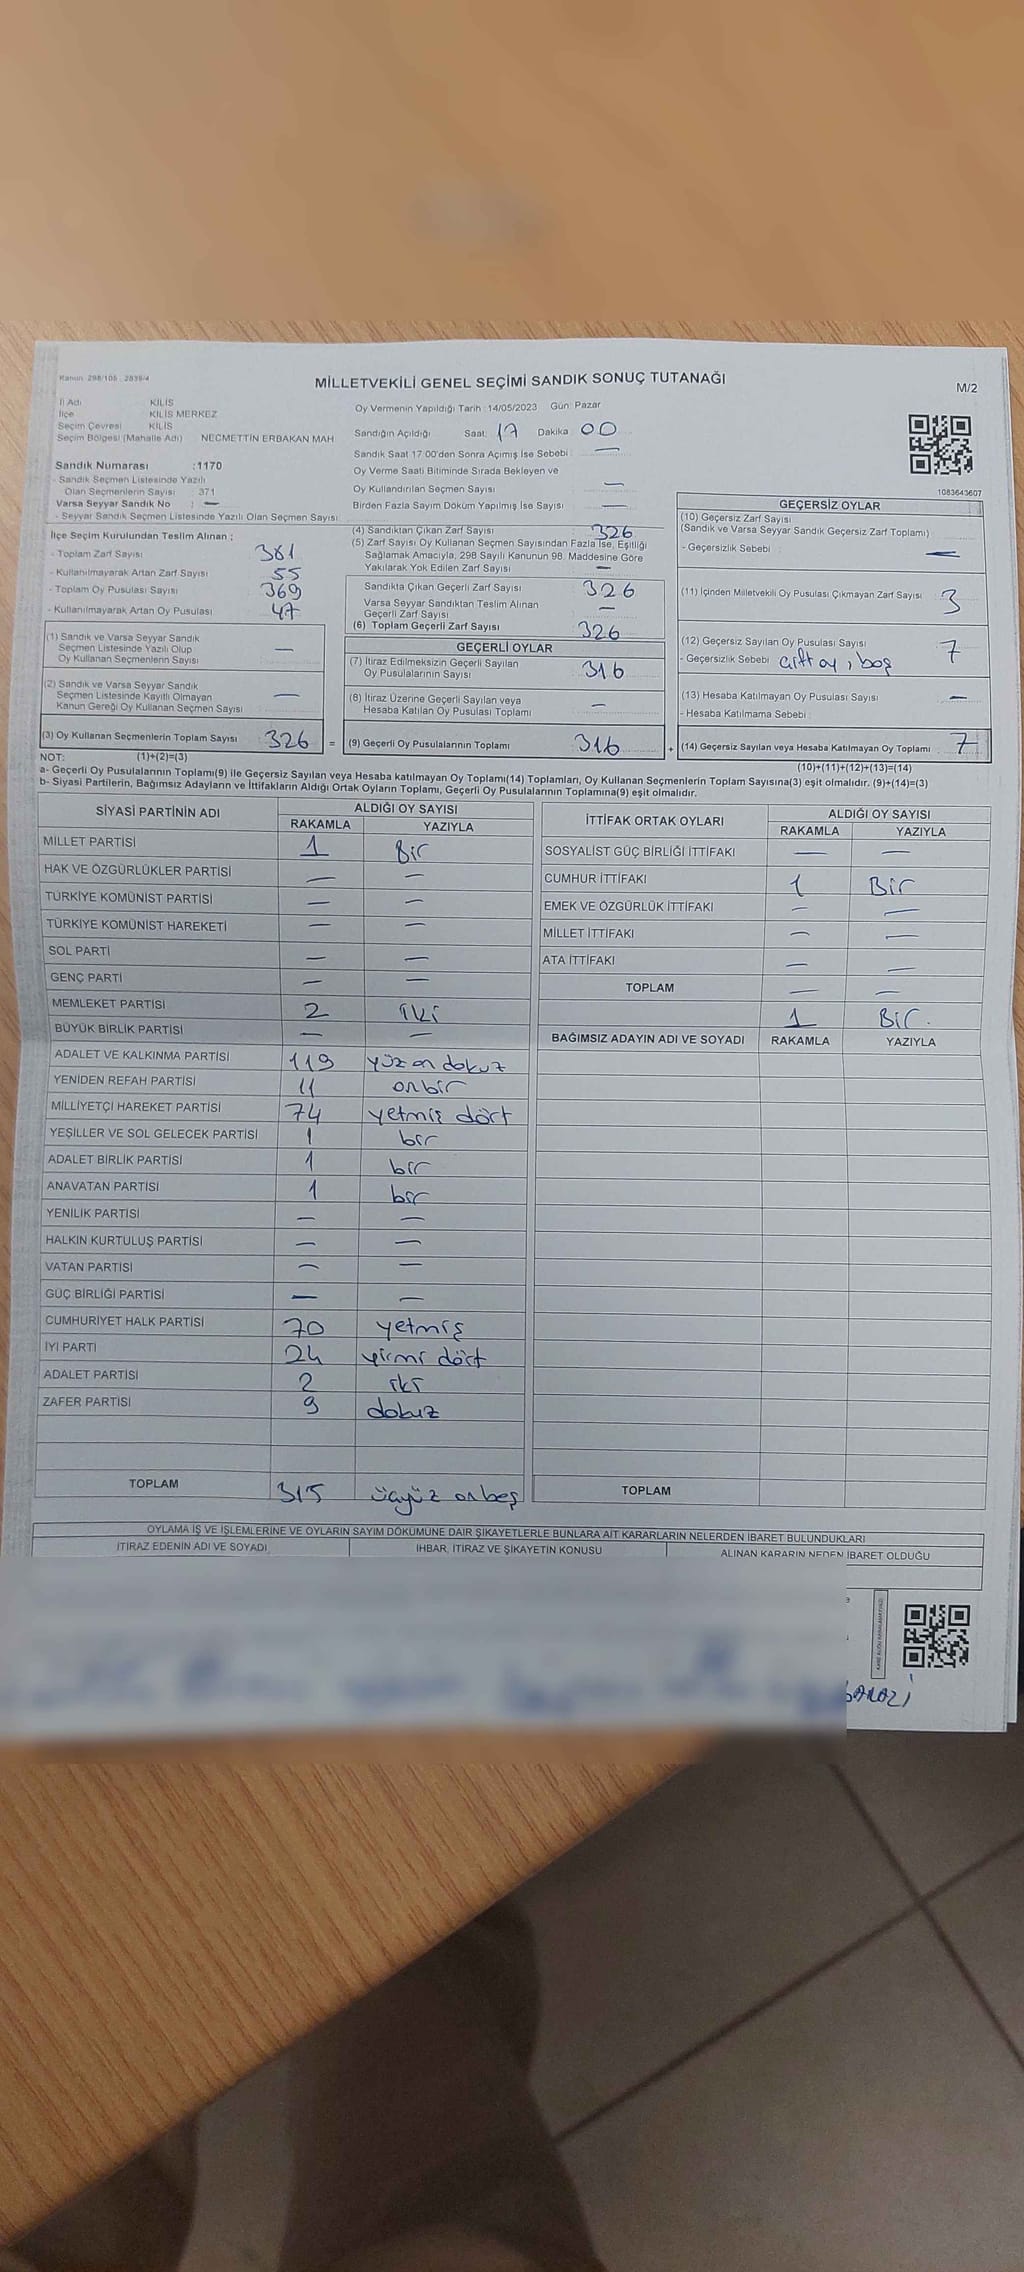 Kanun: 298/105 , 2839/4
MİLLETVEKİLİ GENEL SEÇİMİ SANDIK SONUÇ TUTANAĞI
M/2
İl Adı : KİLİS
İlçe : KİLİS MERKEZ
Seçim Çevresi : KİLİS
Seçim Bölgesi (Mahalle Adı) : NECMETTİN ERBAKAN MAH
Sandık Numarası :1170
- Sandık Seçmen Listesinde Yazılı
Olan Seçmenlerin Sayısı : 371
Varsa Seyyar Sandık No : —
- Seyyar Sandık Seçmen Listesinde Yazılı Olan Seçmen Sayısı:
Oy Vermenin Yapıldığı Tarih :14/05/2023 Gün: Pazar
Sandığın Açıldığı Saat: 17 Dakika: 00
Sandık Saat 17:00'den Sonra Açımış İse Sebebi : —
Oy Verme Saati Bitiminde Sırada Bekleyen ve
Oy Kullandırılan Seçmen Sayısı : —
Birden Fazla Sayım Döküm Yapılmış İse Sayısı : —
1083643607
İlçe Seçim Kurulundan Teslim Alınan ;
- Toplam Zarf Sayısı : 381
- Kullanılmayarak Artan Zarf Sayısı : 55
- Toplam Oy Pusulası Sayısı : 369
- Kullanılmayarak Artan Oy Pusulası : 47
(1) Sandık ve Varsa Seyyar Sandık
Seçmen Listesinde Yazılı Olup
Oy Kullanan Seçmenlerin Sayısı : —
(2) Sandık ve Varsa Seyyar Sandık
Seçmen Listesinde Kayıtlı Olmayan
Kanun Gereği Oy Kullanan Seçmen Sayısı : —
(3) Oy Kullanan Seçmenlerin Toplam Sayısı : 326
(1)+(2)=(3)
(4) Sandıktan Çıkan Zarf Sayısı : 326
(5) Zarf Sayısı Oy Kullanan Seçmen Sayısından Fazla İse, Eşitliği
Sağlamak Amacıyla, 298 Sayılı Kanunun 98. Maddesine Göre
Yakılarak Yok Edilen Zarf Sayısı : —
Sandıkta Çıkan Geçerli Zarf Sayısı : 326
Varsa Seyyar Sandıktan Teslim Alınan
Geçerli Zarf Sayısı : —
(6) Toplam Geçerli Zarf Sayısı : 326
GEÇERLİ OYLAR
(7) İtiraz Edilmeksizin Geçerli Sayılan
Oy Pusulalarının Sayısı : 316
(8) İtiraz Üzerine Geçerli Sayılan veya
Hesaba Katılan Oy Pusulası Toplamı : —
= (9) Geçerli Oy Pusulalarının Toplamı : 316
GEÇERSİZ OYLAR
(10) Geçersiz Zarf Sayısı
(Sandık ve Varsa Seyyar Sandık Geçersiz Zarf Toplamı) :
- Geçersizlik Sebebi : —
(11) İçinden Milletvekili Oy Pusulası Çıkmayan Zarf Sayısı : 3
(12) Geçersiz Sayılan Oy Pusulası Sayısı : 7
- Geçersizlik Sebebi : çift oy, boş
(13) Hesaba Katılmayan Oy Pusulası Sayısı : —
- Hesaba Katılmama Sebebi :
+ (14) Geçersiz Sayılan veya Hesaba Katılmayan Oy Toplamı : 7
(10)+(11)+(12)+(13)=(14)
NOT:
a- Geçerli Oy Pusulalarının Toplamı(9) ile Geçersiz Sayılan veya Hesaba katılmayan Oy Toplamı(14) Toplamları, Oy Kullanan Seçmenlerin Toplam Sayısına(3) eşit olmalıdır. (9)+(14)=(3)
b- Siyasi Partilerin, Bağımsız Adayların ve İttifakların Aldığı Ortak Oyların Toplamı, Geçerli Oy Pusulalarının Toplamına(9) eşit olmalıdır.
SİYASİ PARTİNİN ADI ALDIĞI OY SAYISI
RAKAMLA YAZIYLA
MİLLET PARTİSİ 1 Bir
HAK VE ÖZGÜRLÜKLER PARTİSİ — —
TÜRKİYE KOMÜNİST PARTİSİ — —
TÜRKİYE KOMÜNİST HAREKETİ — —
SOL PARTİ — —
GENÇ PARTİ — —
MEMLEKET PARTİSİ 2 iki
BÜYÜK BİRLİK PARTİSİ — —
ADALET VE KALKINMA PARTİSİ 119 yüz on dokuz
YENİDEN REFAH PARTİSİ 11 onbir
MİLLİYETÇİ HAREKET PARTİSİ 74 yetmiş dört
YEŞİLLER VE SOL GELECEK PARTİSİ 1 bir
ADALET BİRLİK PARTİSİ 1 bir
ANAVATAN PARTİSİ 1 bir
YENİLİK PARTİSİ — —
HALKIN KURTULUŞ PARTİSİ — —
VATAN PARTİSİ — —
GÜÇ BİRLİĞİ PARTİSİ — —
CUMHURİYET HALK PARTİSİ 70 yetmiş
İYİ PARTİ 24 yirmi dört
ADALET PARTİSİ 2 iki
ZAFER PARTİSİ 9 dokuz
TOPLAM 315 üçyüz onbeş
İTTİFAK ORTAK OYLARI ALDIĞI OY SAYISI
RAKAMLA YAZIYLA
SOSYALİST GÜÇ BİRLİĞİ İTTİFAKI — —
CUMHUR İTTİFAKI 1 Bir
EMEK VE ÖZGÜRLÜK İTTİFAKI — —
MİLLET İTTİFAKI — —
ATA İTTİFAKI — —
TOPLAM — —
1 Bir.
BAĞIMSIZ ADAYIN ADI VE SOYADI RAKAMLA YAZIYLA
TOPLAM
OYLAMA İŞ VE İŞLEMLERİNE VE OYLARIN SAYIM DÖKÜMÜNE DAİR ŞİKAYETLERLE BUNLARA AİT KARARLARIN NELERDEN İBARET BULUNDUKLARI
İTİRAZ EDENİN ADI VE SOYADI İHBAR, İTİRAZ VE ŞİKAYETİN KONUSU ALINAN KARARIN NEDEN İBARET OLDUĞU